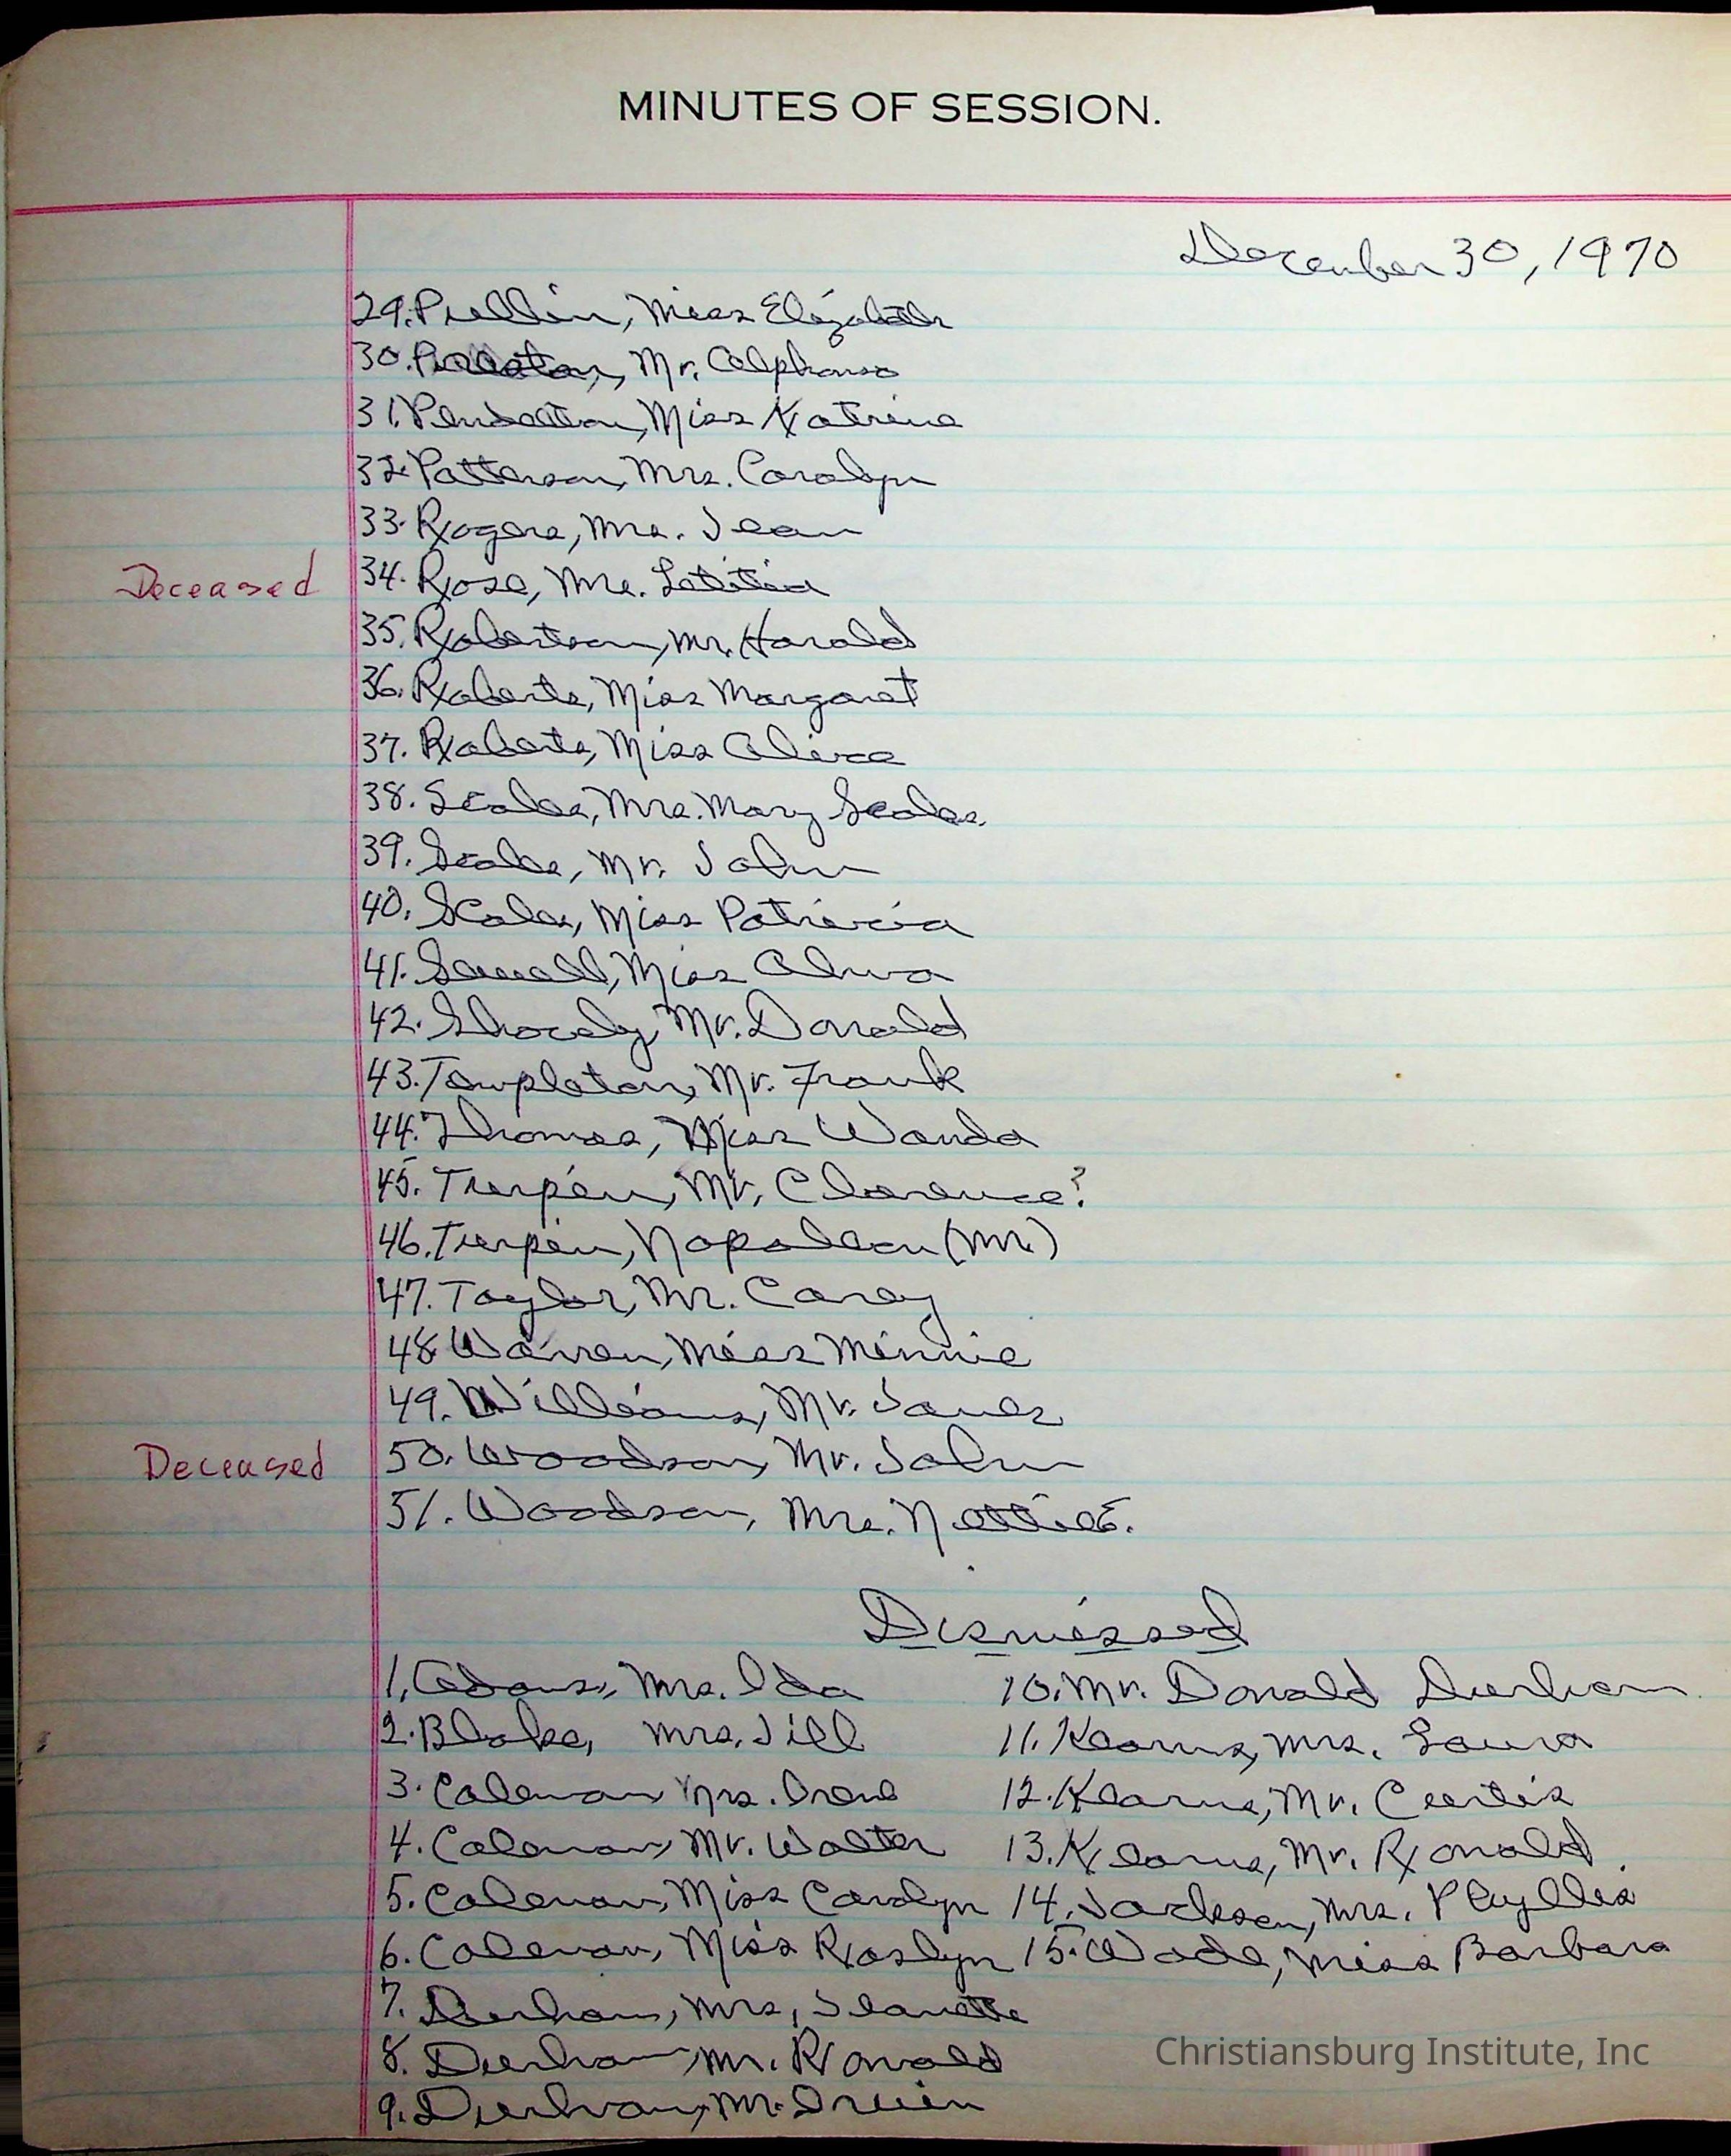 MINUTES OF SESSION.
December 30, 1970
29. Pullin, Miss Elizabeth
30. Mr. Alphonso
31. Pendelton, Miss Katrina
32. Patterson, Mrs. Carolyn
33. Rogers, Mrs. Jean
Deceased 34. Rose, Mrs. Letitia
35. Robertson, Mr. Harold
36. Roberts, Miss Margaret
37. Roberts, Miss Alice
38. Scales, Mrs. Mary Scales
39. Scales, Mr. John
40. Scales, Miss Patricia
41. Miss Alma
42. Mr. Donald
43. Templeton, Mr. Frank
44. Thomas, Miss Wanda
45. Turpin, Mr. Clarence?
46. Turpin, Napoleon (Mr.)
47. Taylor, Mr. Carey
48. Warren, Miss Minnie
49. Williams, Mr. James
Deceased 50. Woodson, Mr. John
51. Woodson, Mrs. Nettie E.
Dismissed
1. Adams, Mrs. Ida
2. Blake, Mrs. Jill
3. Coleman Mrs. Irene
4. Coleman, Mr. Walter
5. Coleman, Miss Carolyn
6. Coleman, Miss Roslyn
7. Durham, Mrs, Jeanette
8. Durham, Mr. Ronald
9. Durham, Mr. Irvin
10. Mr. Donald Durham
11. Kearns, Mrs. Laura
12. Kearns, Mr. Curtis
13. Kearns, Mr. Ronald
14. Jackson, Mrs. Phyllis
15. Wade, Miss Barbara
Christiansburg Institute, Inc